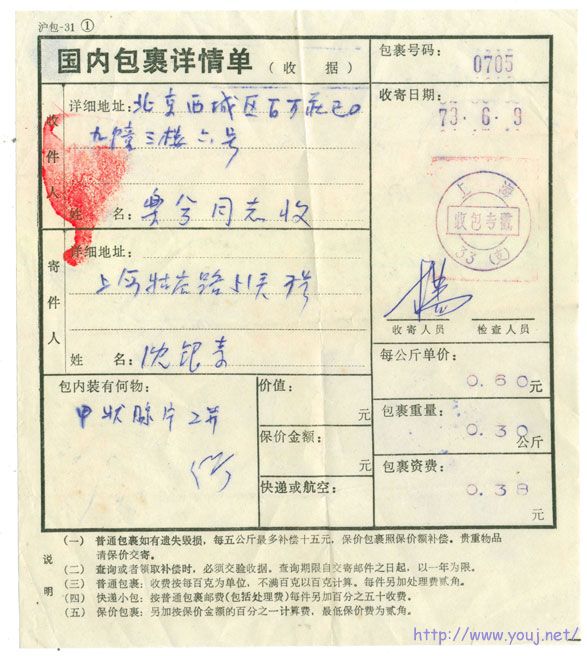 沪包-31 ①
国内包裹详情单（收 据）
包裹号码：
0705
收寄日期：
73.6.9
收件人
详细地址：北京西城区百万庄
三楼六号
姓 名：同志收
上海
收包专戳
33（支）
寄件人
详细地址：
上海路
姓 名：沈银
收寄人员
检查人员
包内装有何物：
甲状腺片2并
价值：
元
保价金额：
元
快递或航空：
每公斤单价：
0.60元
包裹重量：
0.30公斤
包裹资费：
0.38元
说明
（一） 普通包裹如有遗失毁损，每五公斤最多补偿十五元，保价包裹照保价额补偿。贵重物品
请保价交寄。
（二） 查询或者领取补偿时，必须交验收据。查询期限自交寄邮件之日起，以一年为限。
（三） 普通包裹：收费按每百克为单位，不满百克以百克计算。每件另加处理费贰角。
（四） 快递小包：按普通包裹邮费(包括处理费)每件另加百分之五十收费。
（五） 保价包裹：另加按保价金额的百分之一计算费，最低保价费为贰角。
http://www.youj.net/